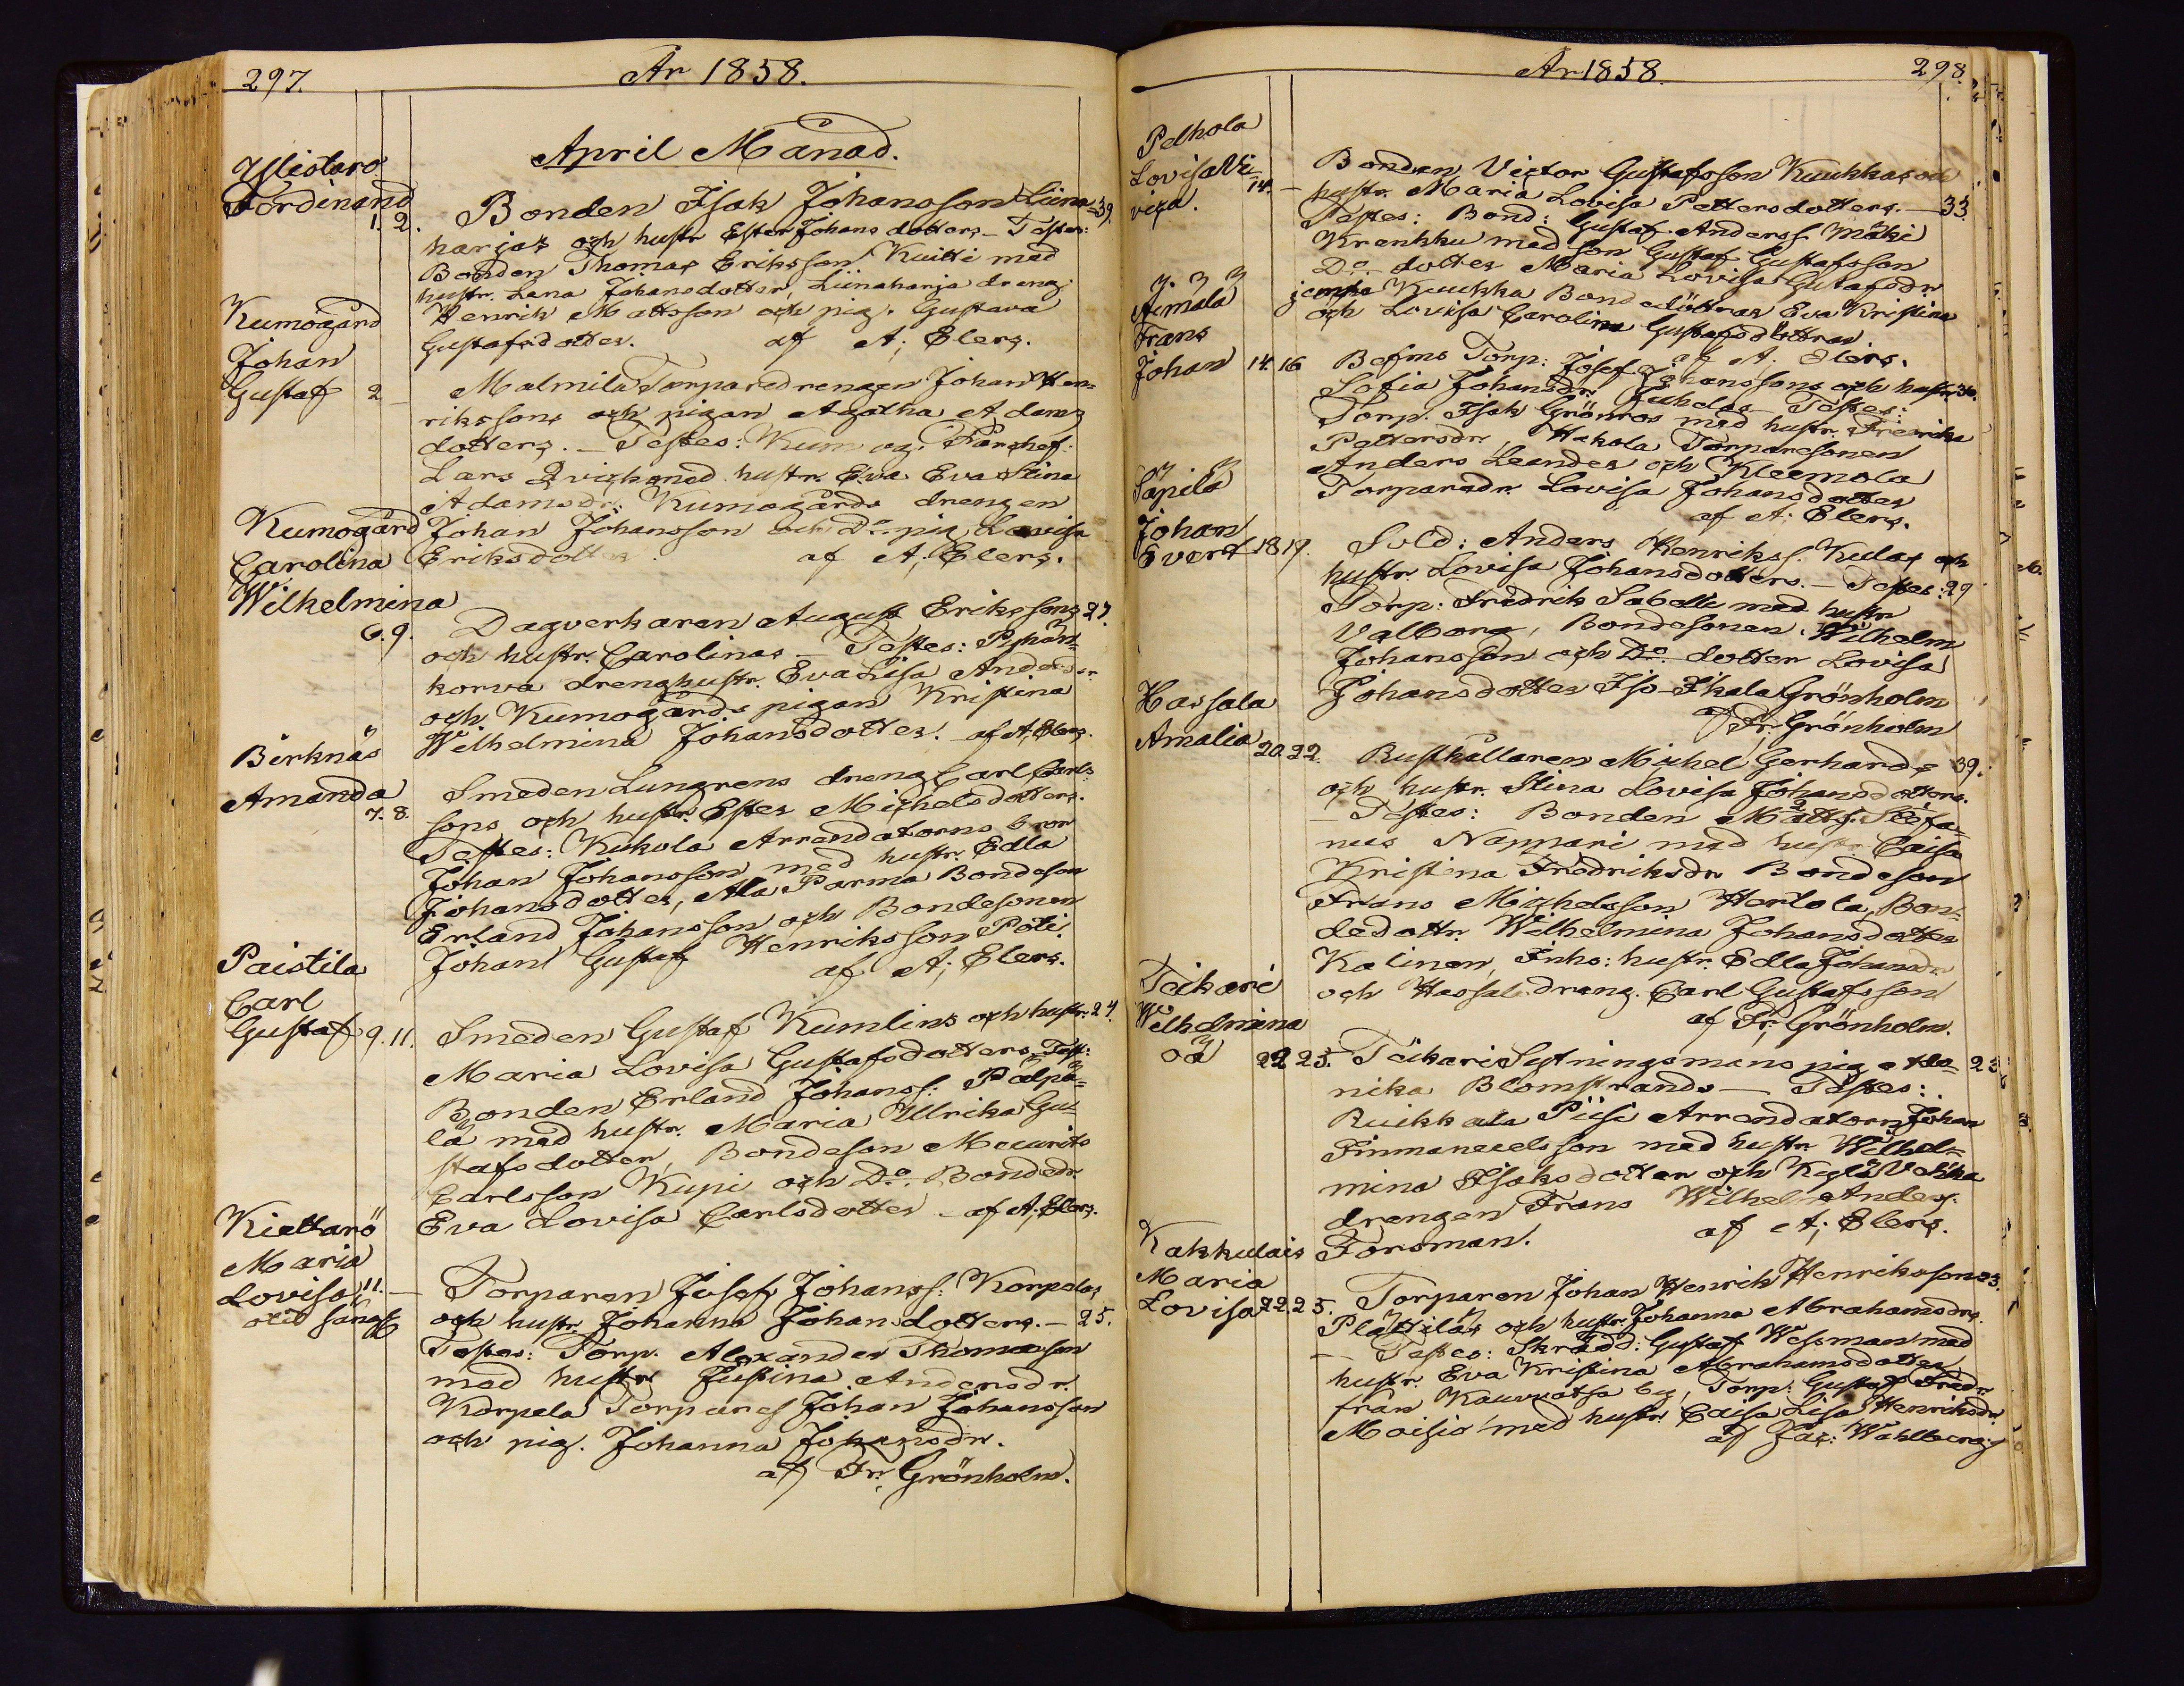 297.
År 1858.
April Månad.
Yllistaro
Ferdinand
1. 2.
Bonden Isak Johansson Liina- 39.
harjas och hustr Ester Johansdotters - Testes:
Bonden Thomas Eriksson Kuitti med
hustr. Lena Johansdotter, Liinaharja dreng
Henrik Mattsson och pig. Gustava
Gustafsdotter. af A; Elers.
Kumogård
Johan
Gustaf 2 -
Malmila Torparedrengen Johan Hen-
rikssons och pigan Agatha Adams
dotters. - Testes: Kumog. Kuskef:
Lars Qvist med hustr. Eva Eva Stina
Adamsdr. Kumogårds drengen
Johan Johansson och Do. pig. Lovisa
Eriksdotter. af A; Elers.
Kumogård
Carolina
Wilhelmina
6. 9.
Dagverkaren August Erikssons 27.
och hustr. Carolinas - Testes: Pyhän-
korva drenghustr. Eva Lisa Andersr.
och Kumogårds pigan Kristina
Wilhelmina Johansdotter. af A; Elers.
Birknäs
Amanda
7. 8.
Smeden Lungrens dreng Carl Carls-
sons och hustr. Ester Michelsdotters.
Testes: Kukola Arrendatorns bror
Johan Johansson med hustr. Edla
Johansdotter, Ala Parma Bondeson
Erland Johansson och Bondesonen
Johan Gustaf Henriksson Poti.
af A; Elers.
Paistila
Carl
Gustaf 9. 11.
Smeden Gustaf Kumlins och hustr. 24.
Maria Lovisa Gustafsdotters Test:
Bonden Erland Johanss: Pälpä-
lä med hustr. Maria Ulrika Gu-
stafsdotter, Bondeson Maurits
Carlsson Kupi och Do. Bondedr.
Eva Lovisa Carlsdotter - af A; Elers.
Kiettarö
Maria
Lovisa 11. -
Torparen Josef Johanss: Korpelas
och hustr. Johanna Johansdotters. - 25.
Testes: Torp. Alexander Thomasson
med hustr. Justina Andersdr.
Korpela Torpares Johan Johansson
och pig. Johanna Johansdr.
af Fr; Grönholm.
År 1858.
298.
Pelhola
Lovisa Vi-
viga. 14. -
Bonden Victor Gustafsson Kuukkas och
hustr. Maria Lovisa Pettersdotters. - 33.
Testes: Bond: Gustaf Anderss: Mäki
Krankku med son Gustaf Gustafsson
Do. dotter Maria Lovisa Gustafsdr.
jemte Kuukka Bondedöttrar Eva Kristina
och Lovisa Carolina Gustafsdöttrar.
af A. Elers.
Äimälä
Frans
Johan 14. 16
Befms Torp: Josef Johanssons och hustr 36.
Sofia Johansdr. - Testes:
Torp. Isak Grönros med hustr. Fredrika
Pettersdr, Hakola Torparesonen
Anders Leander och Kleemola
Torparedr. Lovisa Johansdotter
af A; Elers.
Säpilä
Johan
Evert 18 19.
Sold: Anders Henrikss: Kulas och
hustr. Lovisa Johansdotters. - Testes: 29
Torp: Fredrik Sabelli med hustr
Valborg, Bondesonen Wilhelm
Johansson och Do. dotter Lovisa
Johansdotter Iso-Ikala Grönholm
af Fr; Grönholm
Hassala
Amalia 20. 22.
Rusthållaren Michel Gerhards 39.
och hustr. Stina Lovisa Johansdotters.
- Testes: Bonden Matts Stefa-
nus Nappari med hustr. Caisa
Kristina Fredriksdr Bondeson
Frans Michelsson Hertola, Bon-
dedottr. Wilhelmina Johansdotter
Kalinen, Inhs: hustr. Edla Johansdr
och Hassala dreng. Carl Gustafsson
af Fr; Grönholm.
Teikari
Wilhelmina
oä 22 25.
Teikari Sytningsmans pig. 23
nika Blomstrands - Testes:
Ruikkala Piisi Arrendatorn Johan
Immanuelsson med hustr. Wilhel-
mina Isaksdotter och Kylä Vahka
drengen Frans Wilhelm Anders:
Forsman. af A; Elers.
Kakkulais
Maria
Lovisa 22. 25.
Torparen Johan Henrik Henrikssons 23.
Plättiläs och hustr. Johanna Abrahamsdrs.
- Testes: Skrädd: Gustaf Wessman med
hustr. Eva Kristina Abrahamsdotter
från Kauvatsa by, Torp: Gustaf Fredr
Moisio med hustr. Caisa Lisa Henriksdr.
af Jac: Wahlberg